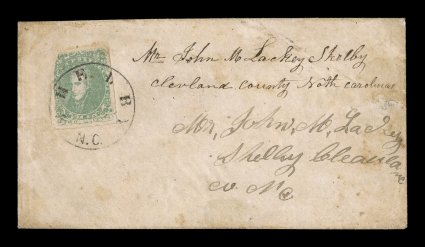 Mr John M Lackey Shelby
cleveland county North carolina
Mr, John, M, Lackey
Shelby Cleavland
co Nc
N.C.